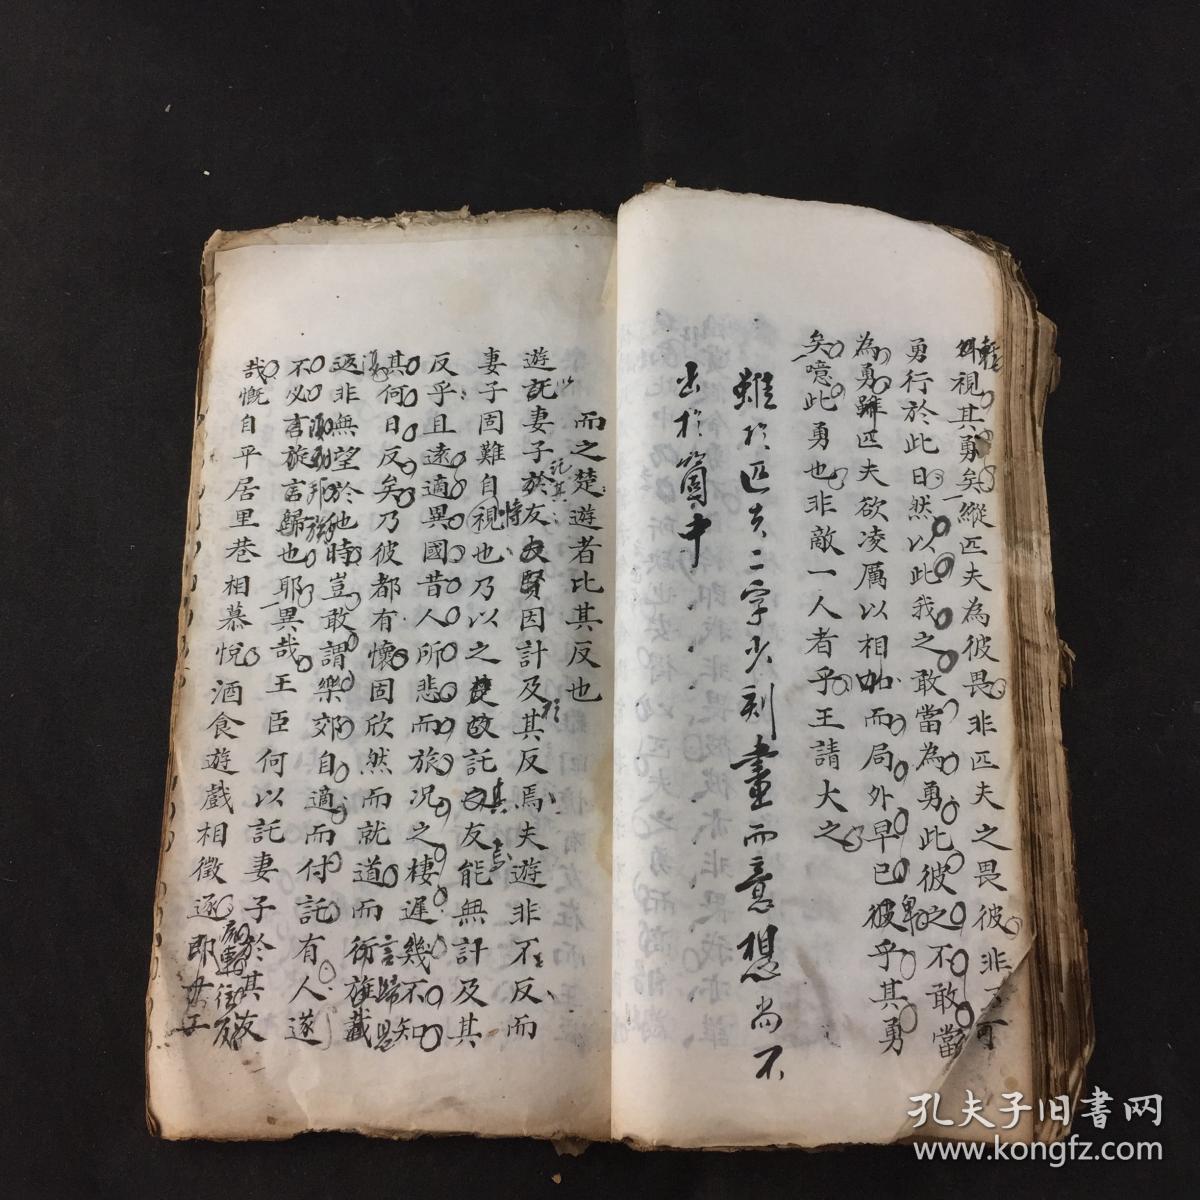 視其勇矣縱匹夫為彼畏非匹夫之畏彼非
勇行於此日然以此我之敢當為勇此彼之不敢當
為勇雖匹夫欲凌厲以相加而局外早已彼乎其勇
矣噫此勇也非敵一人者乎王請大之
雖於匹夫二字少刻畫而意想尚不
出於箇中
而之楚遊者比其反也
遊託妻子於友賢因計及其反焉夫遊非不反而
妻子固難自視也乃以之託友能無計及其
反乎且遠適異國昔人所悲而旅况之棲遲幾不知
其何日反矣乃彼都有懷固欣然而就道而
返非無望於他時豈敢謂樂郊自適而付託有人遂
不必言旋言歸也耶異哉王臣何以託妻子於其友
哉慨自平居里巷相慕悅酒食遊戲相徵逐即
孔夫子旧書网
www.kongfz.com